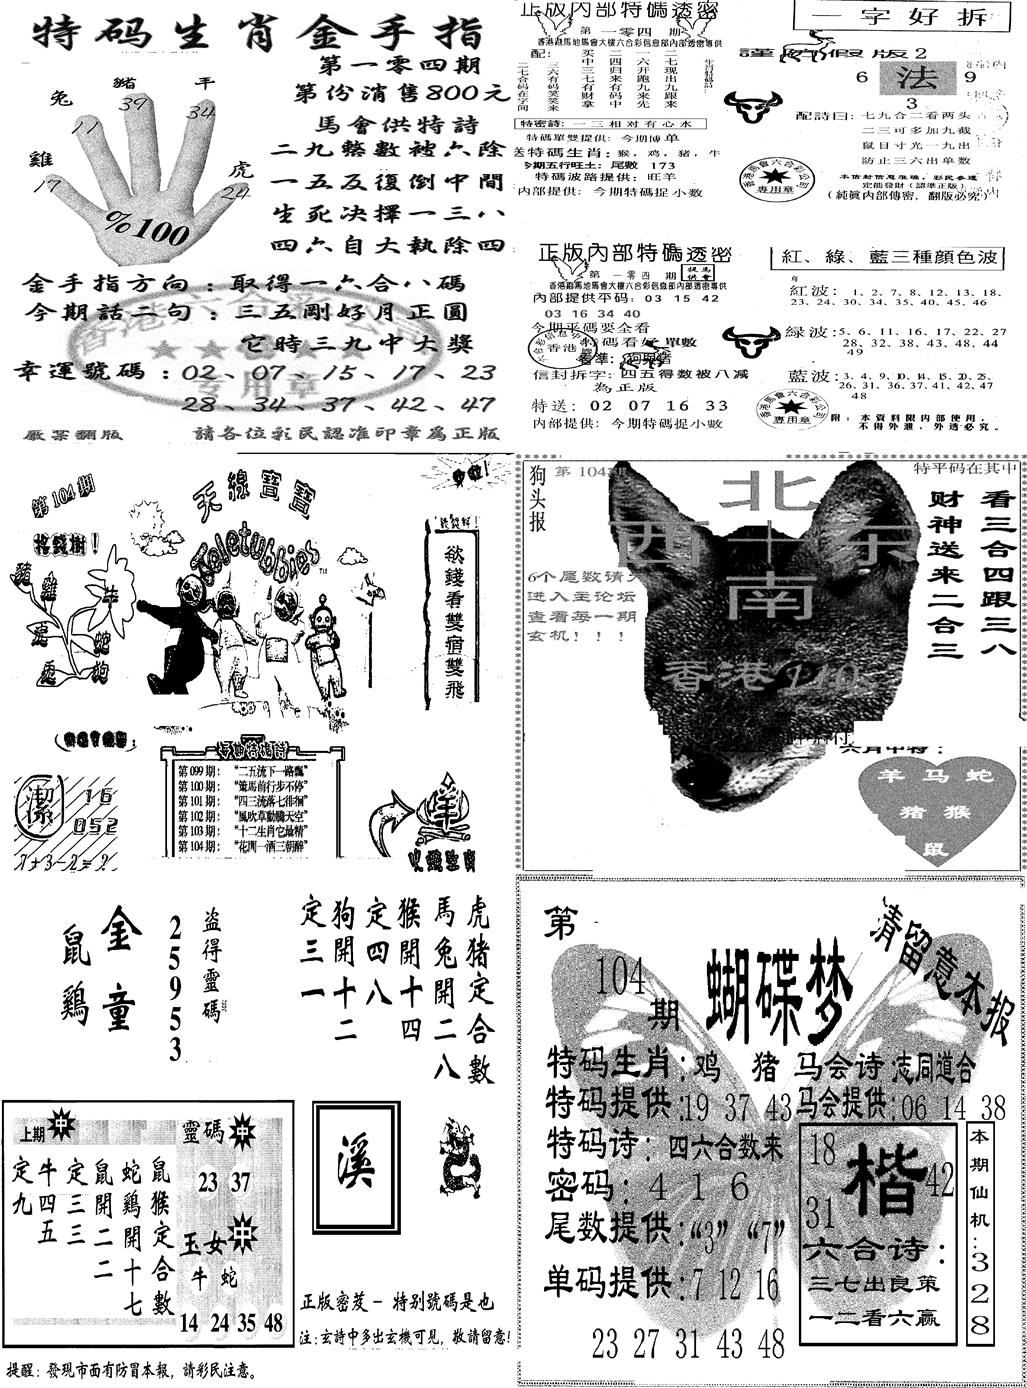 特码生肖金手指
第一零四期
第份消售800元
馬會供特詩
二九整數被六除
一五反復倒中間
生死决擇一三八
四六自大執除四
兔
豬
羊
雞
虎
11
39
34
17
24
%100
金手指方向：取得一六合八碼
今期話二句：三五剛好月正圓
它時三九中大獎
幸運號碼：02、07、15、17、23
28、34、37、42、47
嚴禁翻版
請各位彩民認准印章為正版
正版内部特碼透密
第一零四期
香港跑馬地馬會大樓六合彩信息部内部透密專供
配：
买中三七有财拿
二四归来有码中
一六开跑九来先
二七现出九跟来
三六有码笑笑来
二七合码在字间
特密詩：一三相对有心水
特碼單雙提供：今期博单
送特碼生肖：猴，鸡，猪，牛
今期五行旺土：尾數 173
特碼波路提供：旺羊
内部提供：今期特碼捉小数
一字好拆
謹防假版2
6
法
9
3
配詩曰：七九合二看两头
二三可多加九截
鼠目寸光一九出
防止三六出单数
定能發財（認準正版）
（純眞内部傳密，翻版必究）
香港馬會六合彩公司
專用章
正版内部特碼透密
第一零四期
香港跑馬地馬會大樓六合彩信息部内部透密專供
内部提供平码：03 15 42
03 16 34 40
今期平碼要全看
特碼看好單數
信封拆字：四五得数被八减
為正版
特送：02 07 16 33
内部提供：今期特碼捉小數
紅、綠、藍三種顏色波
紅波：1、2、7、8、12、13、18、
23、24、30、34、35、40、45、46
緑波：5、6、11、16、17、22、27
28、32、38、43、48、44
49
藍波：3、4、9、10、14、15、20、25、
26、31、36、37、41、42、47
48
附：本資料限内部使用，
不得外泄，外透必究。
香港馬會六合彩公司
專用章
第104期
天線寶寶
Teletubbies
搖錢樹！
豬
雞
牛
蛇
狗
兔
欲錢看雙宿雙飛
第099期：“二五流下一路飄”
第100期：“策馬前行步不停”
第101期：“四三流落七徘徊”
第102期：“風吹草動騰天空”
第103期：“十二生肖它最精”
第104期：“花開一酒三朝醉”
潔
16
052
7+3-2=?
狗头报
第104期
特平码在其中
北
西十东
南
看三合四跟三八
财神送来二合三
6个尾数请先
进入主论坛
查看每一期
玄机！！！
六肖中特：
羊 马 蛇
猪 猴
鼠
金童
鼠鷄
盗得靈碼
25953
虎猪定合數
馬兔開二八
猴開十四
定四八
狗開十二
定三一
上期中
鼠猴定合數
蛇鷄開十七
鼠開二二
定三三
牛四五
定九
靈碼中
23 37
玉女中
牛 蛇
14 24 35 48
溪
正版密笈－特别號碼是也
注：玄詩中多出玄機可見，敬請留意！
提醒：發現市面有防冒本報，請彩民注意。
第104期
蝴蝶梦
请留意本报
特码生肖：鸡 猪
马会诗：志同道合
特码提供：19 37 43
马会提供：06 14 38
特码诗：四六合数来
密码：4 1 6
尾数提供：“3” “7”
单码提供：7 12 16
23 27 31 43 48
18
楷
42
31
六合诗：
三七出良策
一二看六赢
本期仙机：328